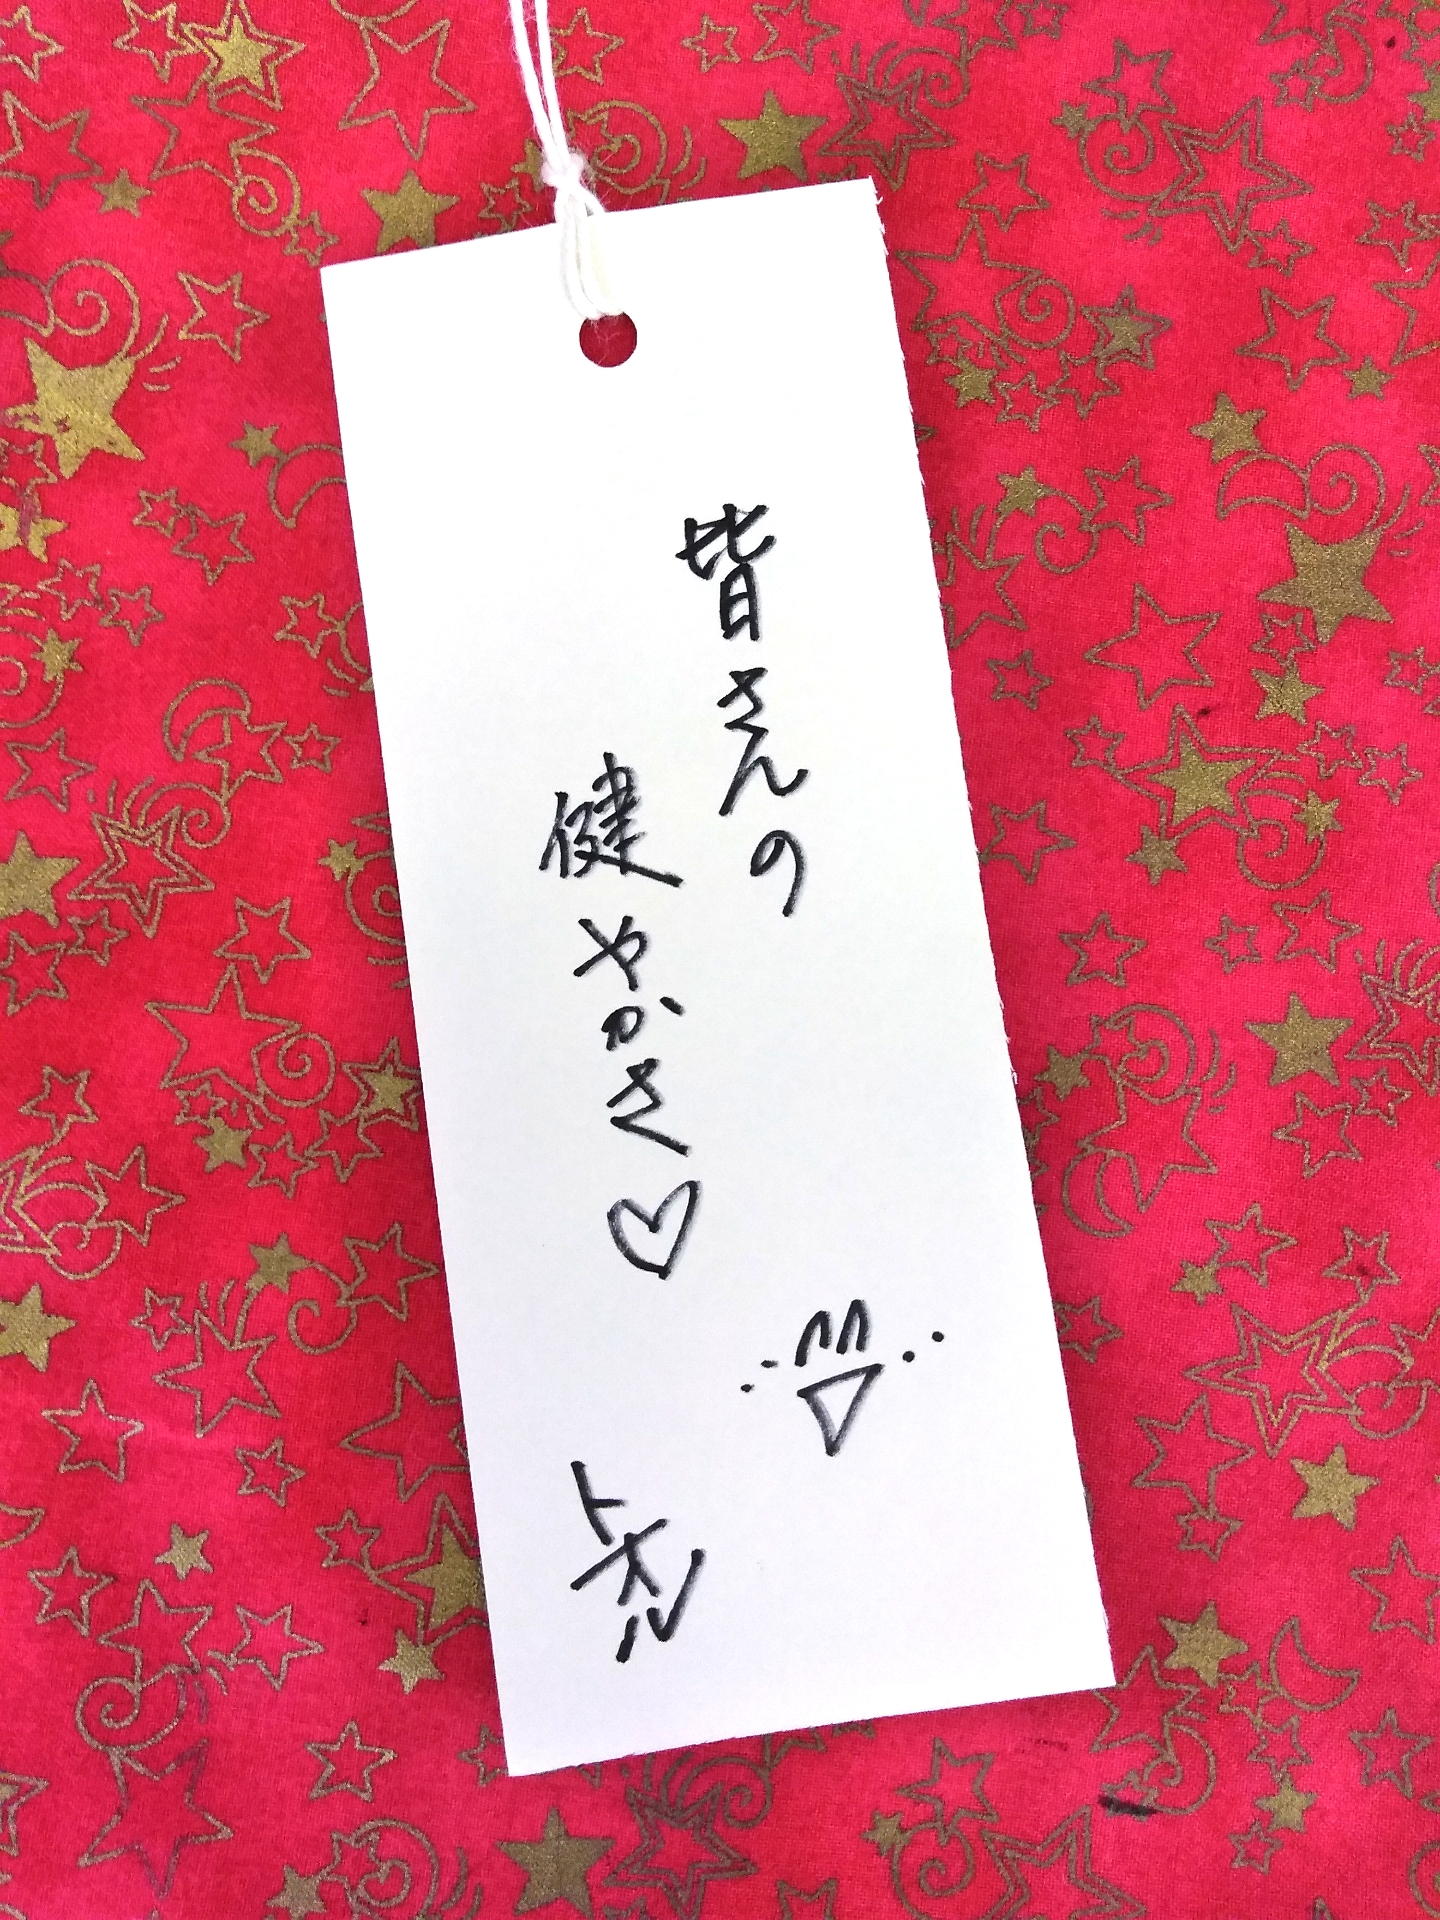 皆さんの
健やかさ♡
トオル